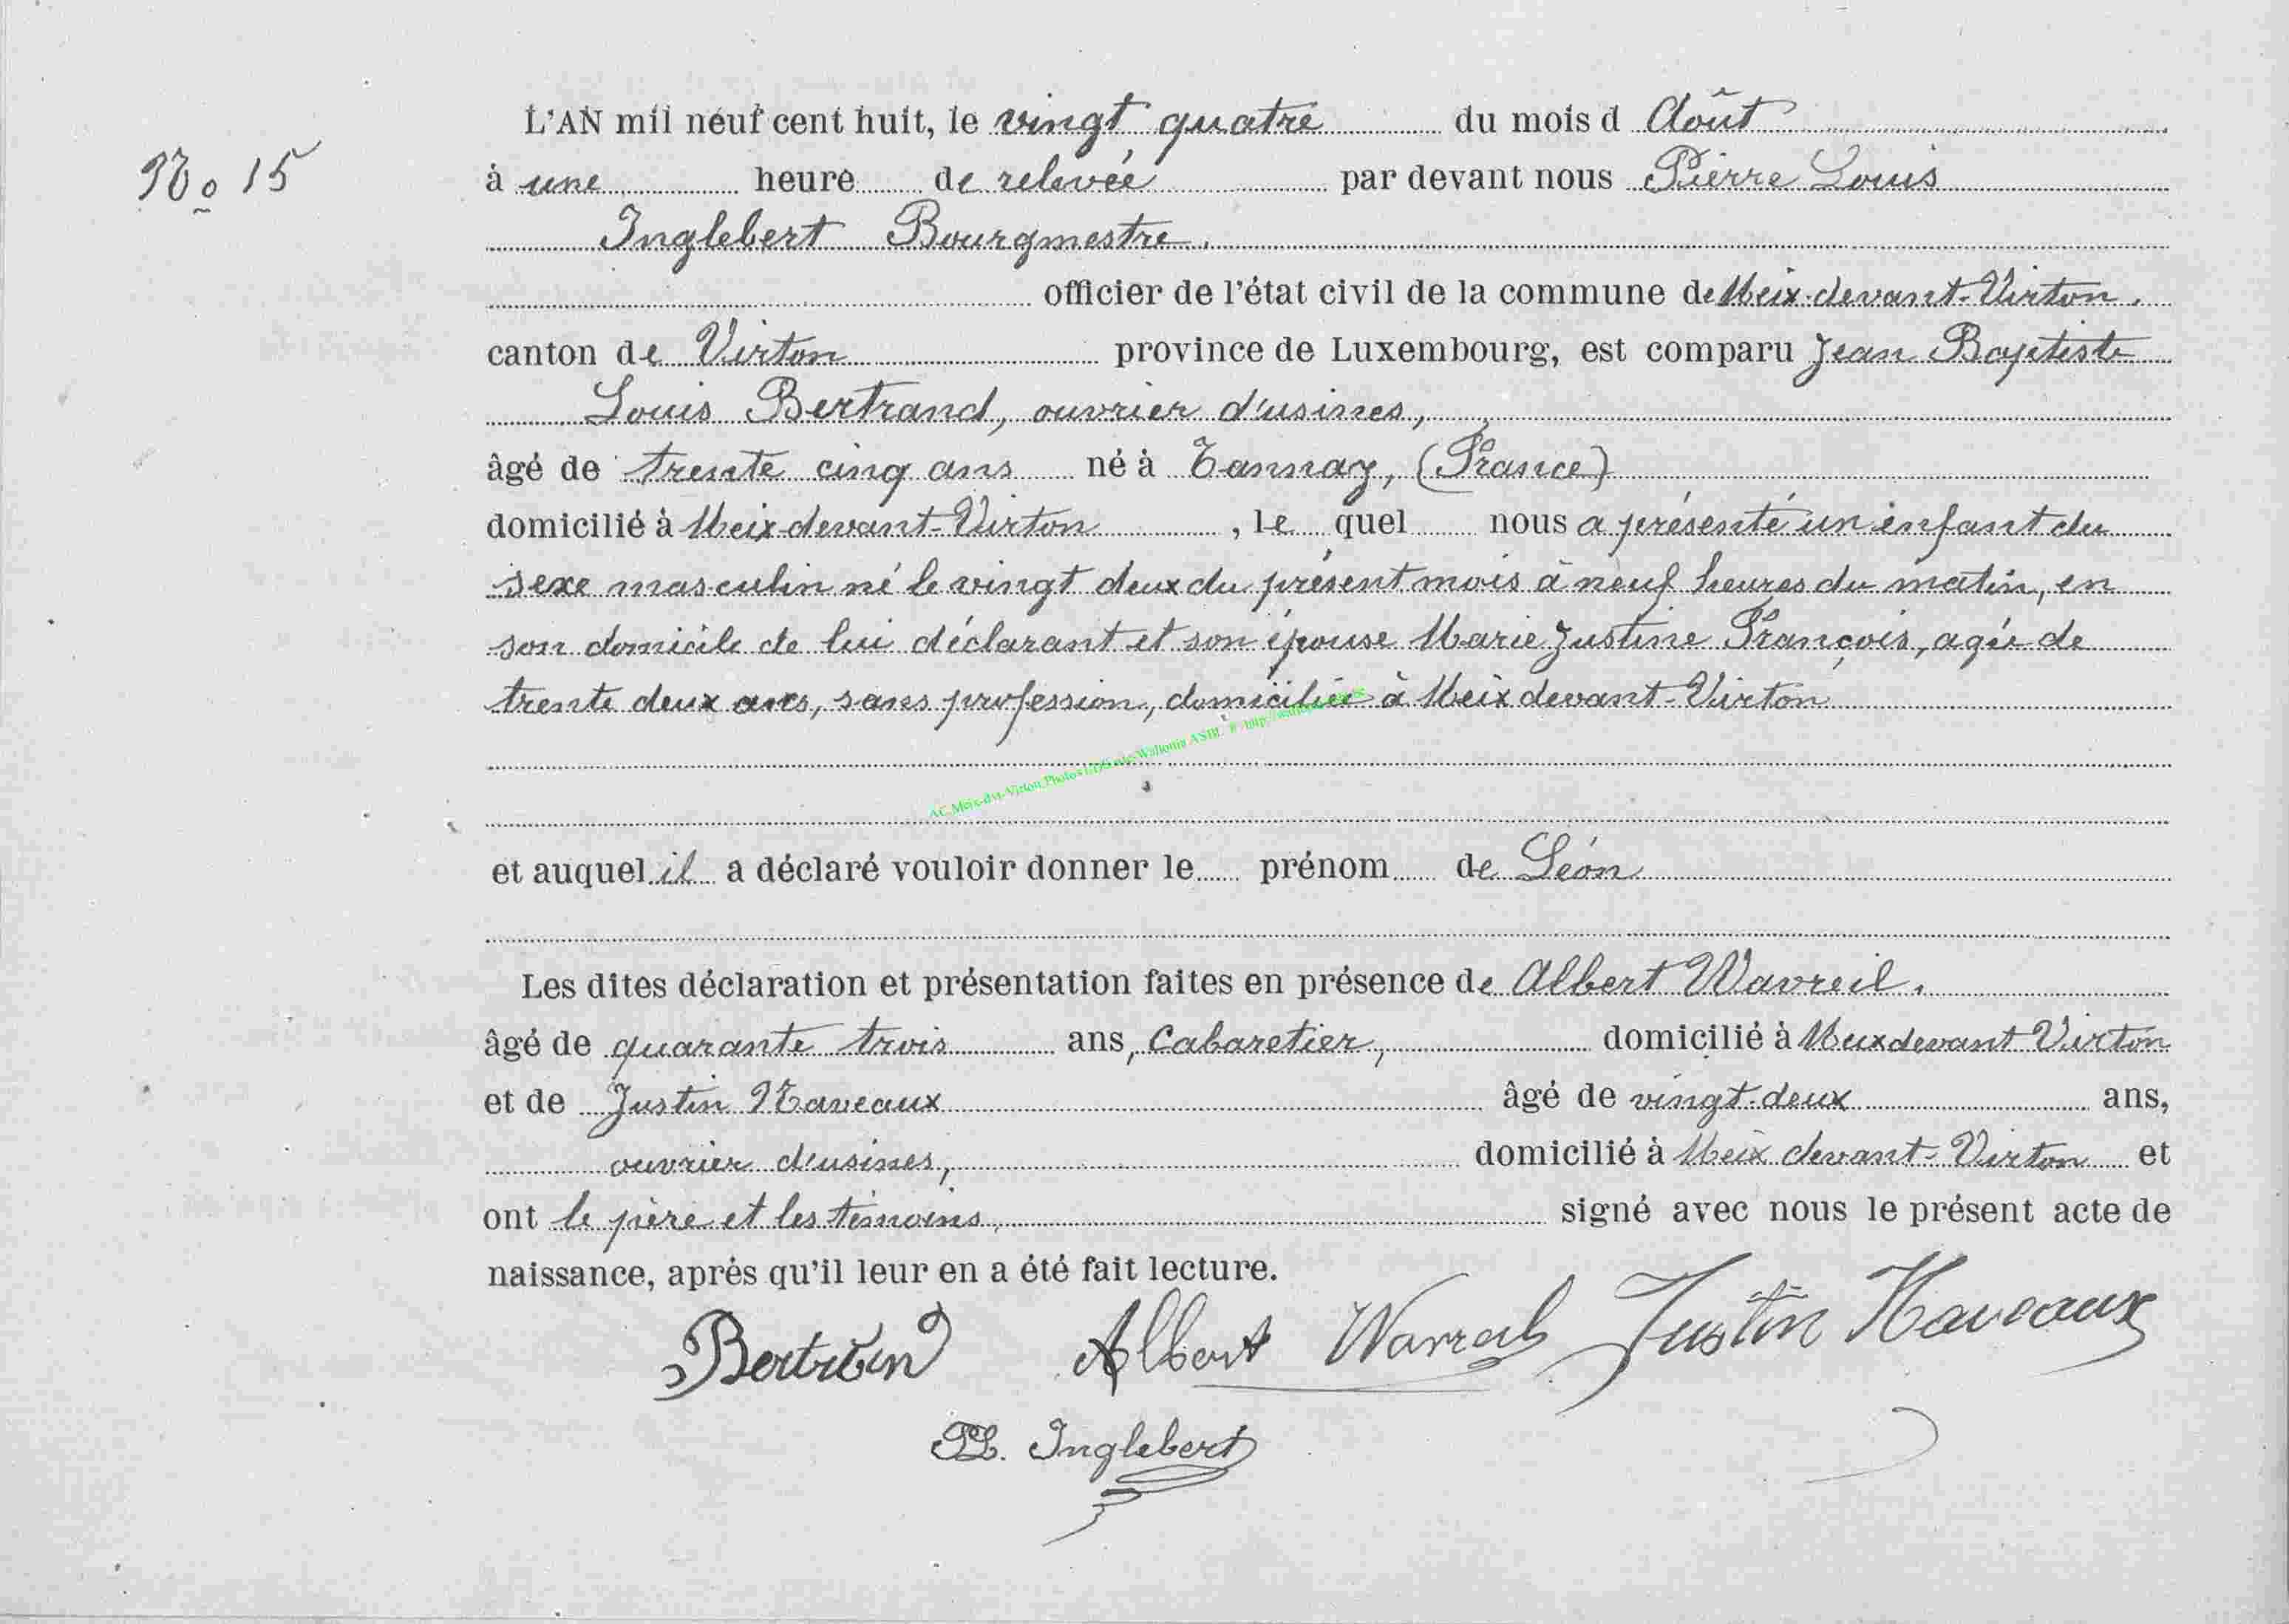 L'AN mil neuf cent huit, le vingt quatre du mois d Août
No 15
à une heure de relevée par devant nous Pierre Louis
Inglebert Bourgmestre.
officier de l'état civil de la commune de Meix-devant-Virton.
canton de Virton province de Luxembourg, est comparu Jean Baptiste
Louis Bertrand, ouvrier d'usines,
âgé de trente cinq ans né à Tannay, (France)
domicilié à Meix-devant-Virton, le quel nous a présenté un enfant du
sexe masculin né le vingt deux du présent mois à neuf heures du matin, en
son domicile de lui déclarant et son épouse Marie Justine François, agée de
trente deux ans, sans profession, domiciliée à Meix devant-Virton
AC Meix-dvt-Virton Photos Wallonia ASBL
et auquel il a déclaré vouloir donner le prénom de Léon
Les dites déclaration et présentation faites en présence de Albert Wavreil.
âgé de quarante trois ans, Cabaretier, domicilié à Meix devant Virton
et de Justin Naveaux âgé de vingt-deux ans,
ouvrier d'usines, domicilié à Meix devant-Virton et
ont le père et les témoins, signé avec nous le présent acte de
naissance, après qu'il leur en a été fait lecture.
Albert Justin Naveaux
PL. Inglebert